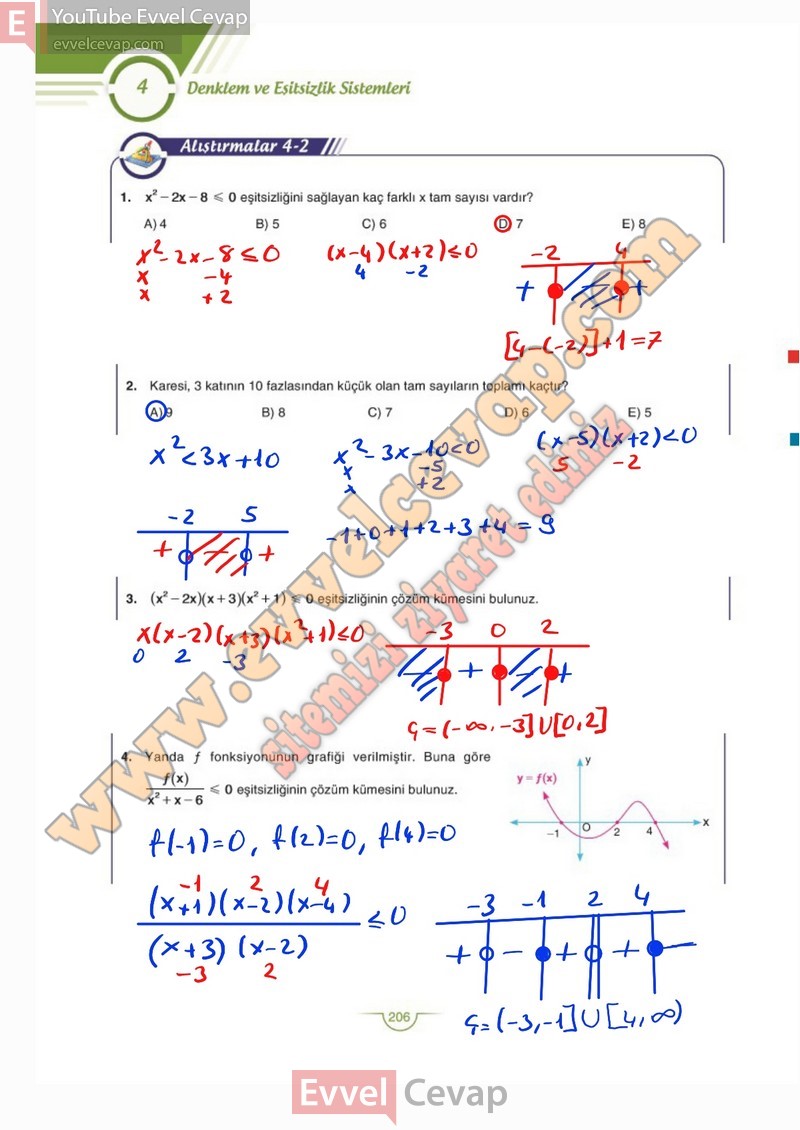 E
YouTube Evvel Cevap
evvelcevap.com
4
Denklem ve Eşitsizlik Sistemleri
Alıştırmalar 4-2
1. x² – 2x – 8 ⩽ 0 eşitsizliğini sağlayan kaç farklı x tam sayısı vardır?
A) 4 B) 5 C) 6 D) 7 E) 8
x²-2x-8≤0 (x-4)(x+2)≤0 -2 4
x -4 4 -2 + +
x +2
[4-(-2)]+1=7
2. Karesi, 3 katının 10 fazlasından küçük olan tam sayıların toplamı kaçtır?
A) 9 B) 8 C) 7 D) 6 E) 5
x²<3x+10 x²-3x-10<0 (x-5)(x+2)<0
x -5 5 -2
x +2
-2 5
+ +
-1+0+1+2+3+4=9
3. (x² – 2x)(x + 3)(x² + 1) ⩽ 0 eşitsizliğinin çözüm kümesini bulunuz.
x(x-2)(x+3)(x²+1)≤0 -3 0 2
0 2 -3 + +
Ç=(-∞,-3]U[0,2]
4. Yanda f fonksiyonunun grafiği verilmiştir. Buna göre
f(x)
x² + x – 6
⩽ 0 eşitsizliğinin çözüm kümesini bulunuz.
y
y = f(x)
-1 O 2 4 x
f(-1)=0, f(2)=0, f(4)=0
-1 2 4
(x+1)(x-2)(x-4)
≤0
(x+3)(x-2)
-3 2
-3 -1 2 4
+ - + + -
Ç=(-3,-1]U[4,∞)
206
www.evvelcevap.com
sitemizi ziyaret ediniz
Evvel Cevap